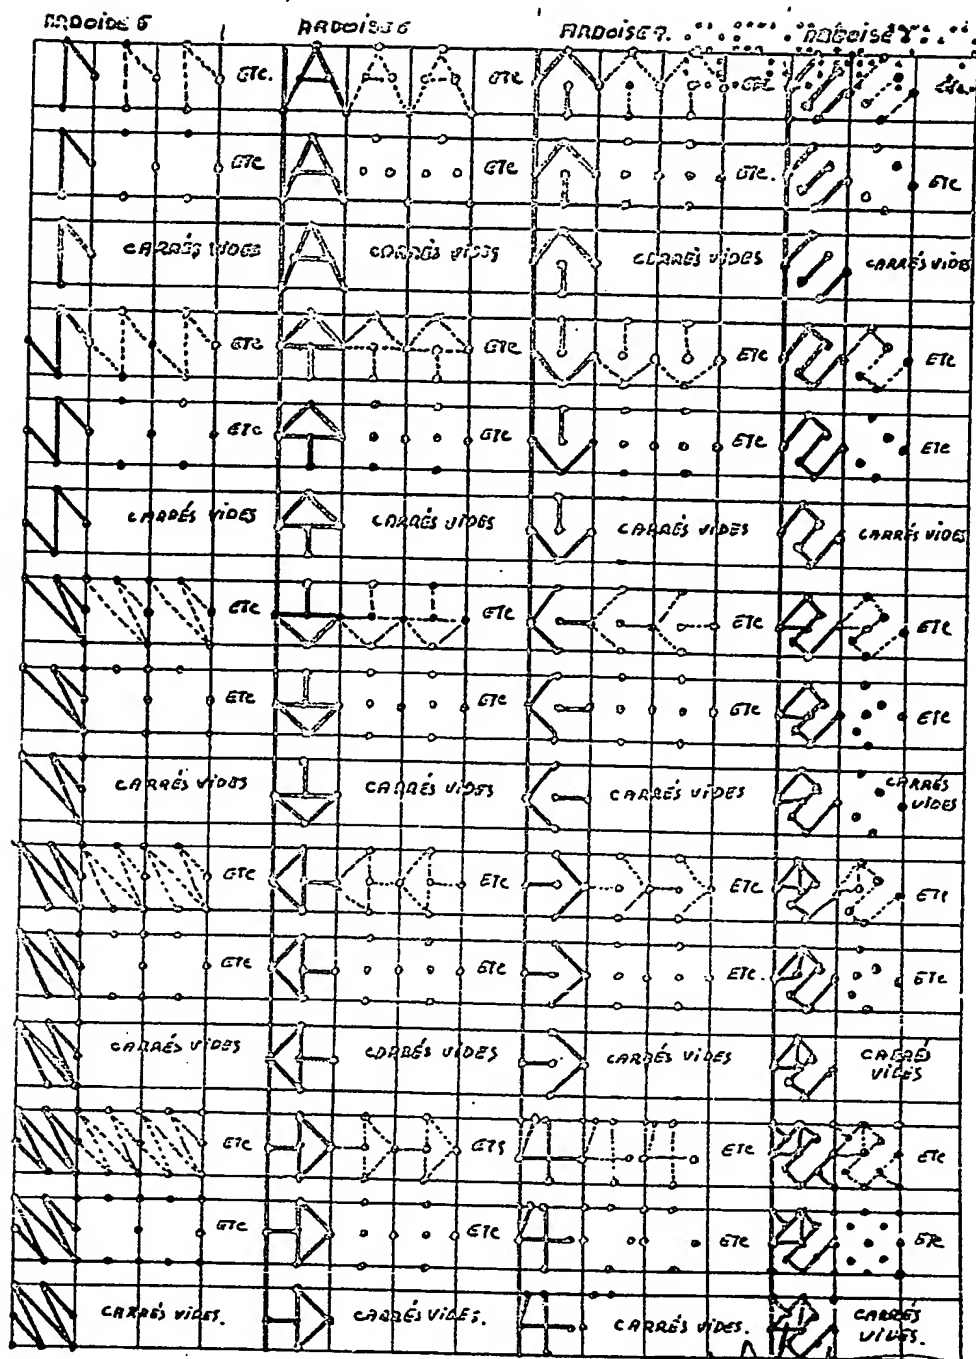 ARDOIDE 6 ARDOISE 6 ARDOISE 7. ARDOISE
ETC. ETC ETC
ETC ETC ETC. ETC
CARRÉS VIDES CARRÉS VIDES CARRÉS VIDES CARRÉS VIDES
ETC ETC ETC ETC
ETC ETC ETC ETC
CARRÉS VIDES CARRÉS VIDES CARRÉS VIDES CARRÉS VIDES
ETC ETC ETC ETC
ETC ETC ETC ETC
CARRÉS VIDES CARRÉS VIDES CARRÉS VIDES CARRÉS
VIDES
ETC ETC ETC ETC
ETC ETC ETC. ETC
CARRÉS VIDES CARRÉS VIDES CARRÉS VIDES CARRÉS
VIDES
ETC ETC ETC ETC
ETC ETC ETC ETC
CARRÉS VIDES. CARRÉS VIDES. CARRÉS VIDES. CARRÉS
VIDES.